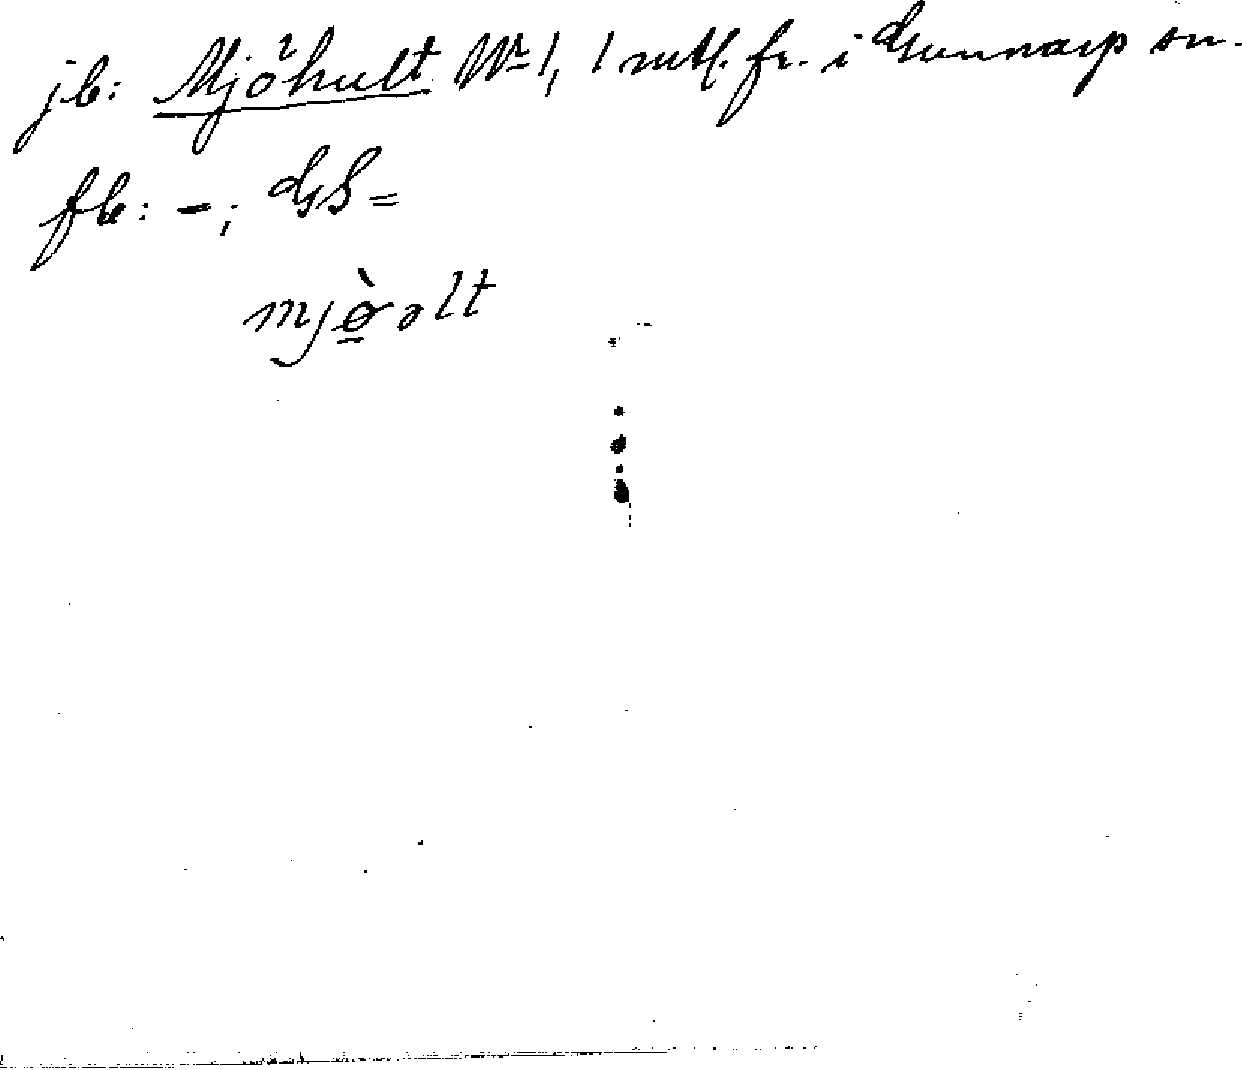 jb: Mjöhult Nr 1, 1 mtl. fr. i Gunnarp sn.
fb: -; GS =
mjø̀ ɔlt